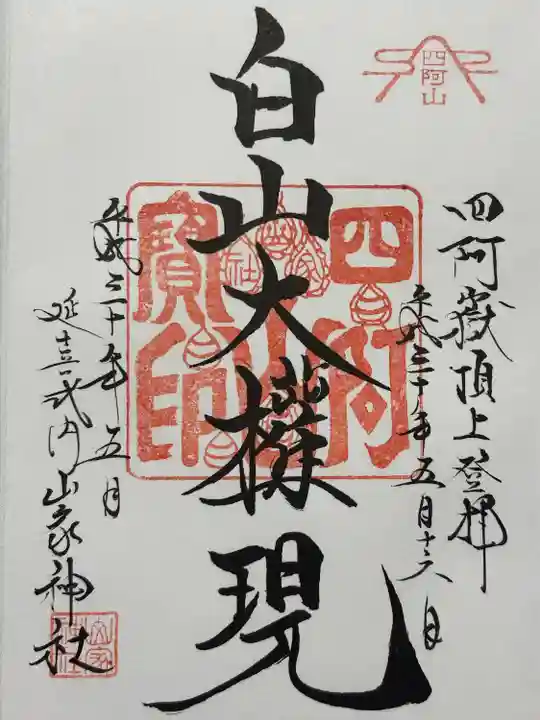 四阿山
四阿嶽頂上登拝
平成三十年五月十六日
白山大權現
四阿山
寶印
平成三十年五月
延喜式内山家神社